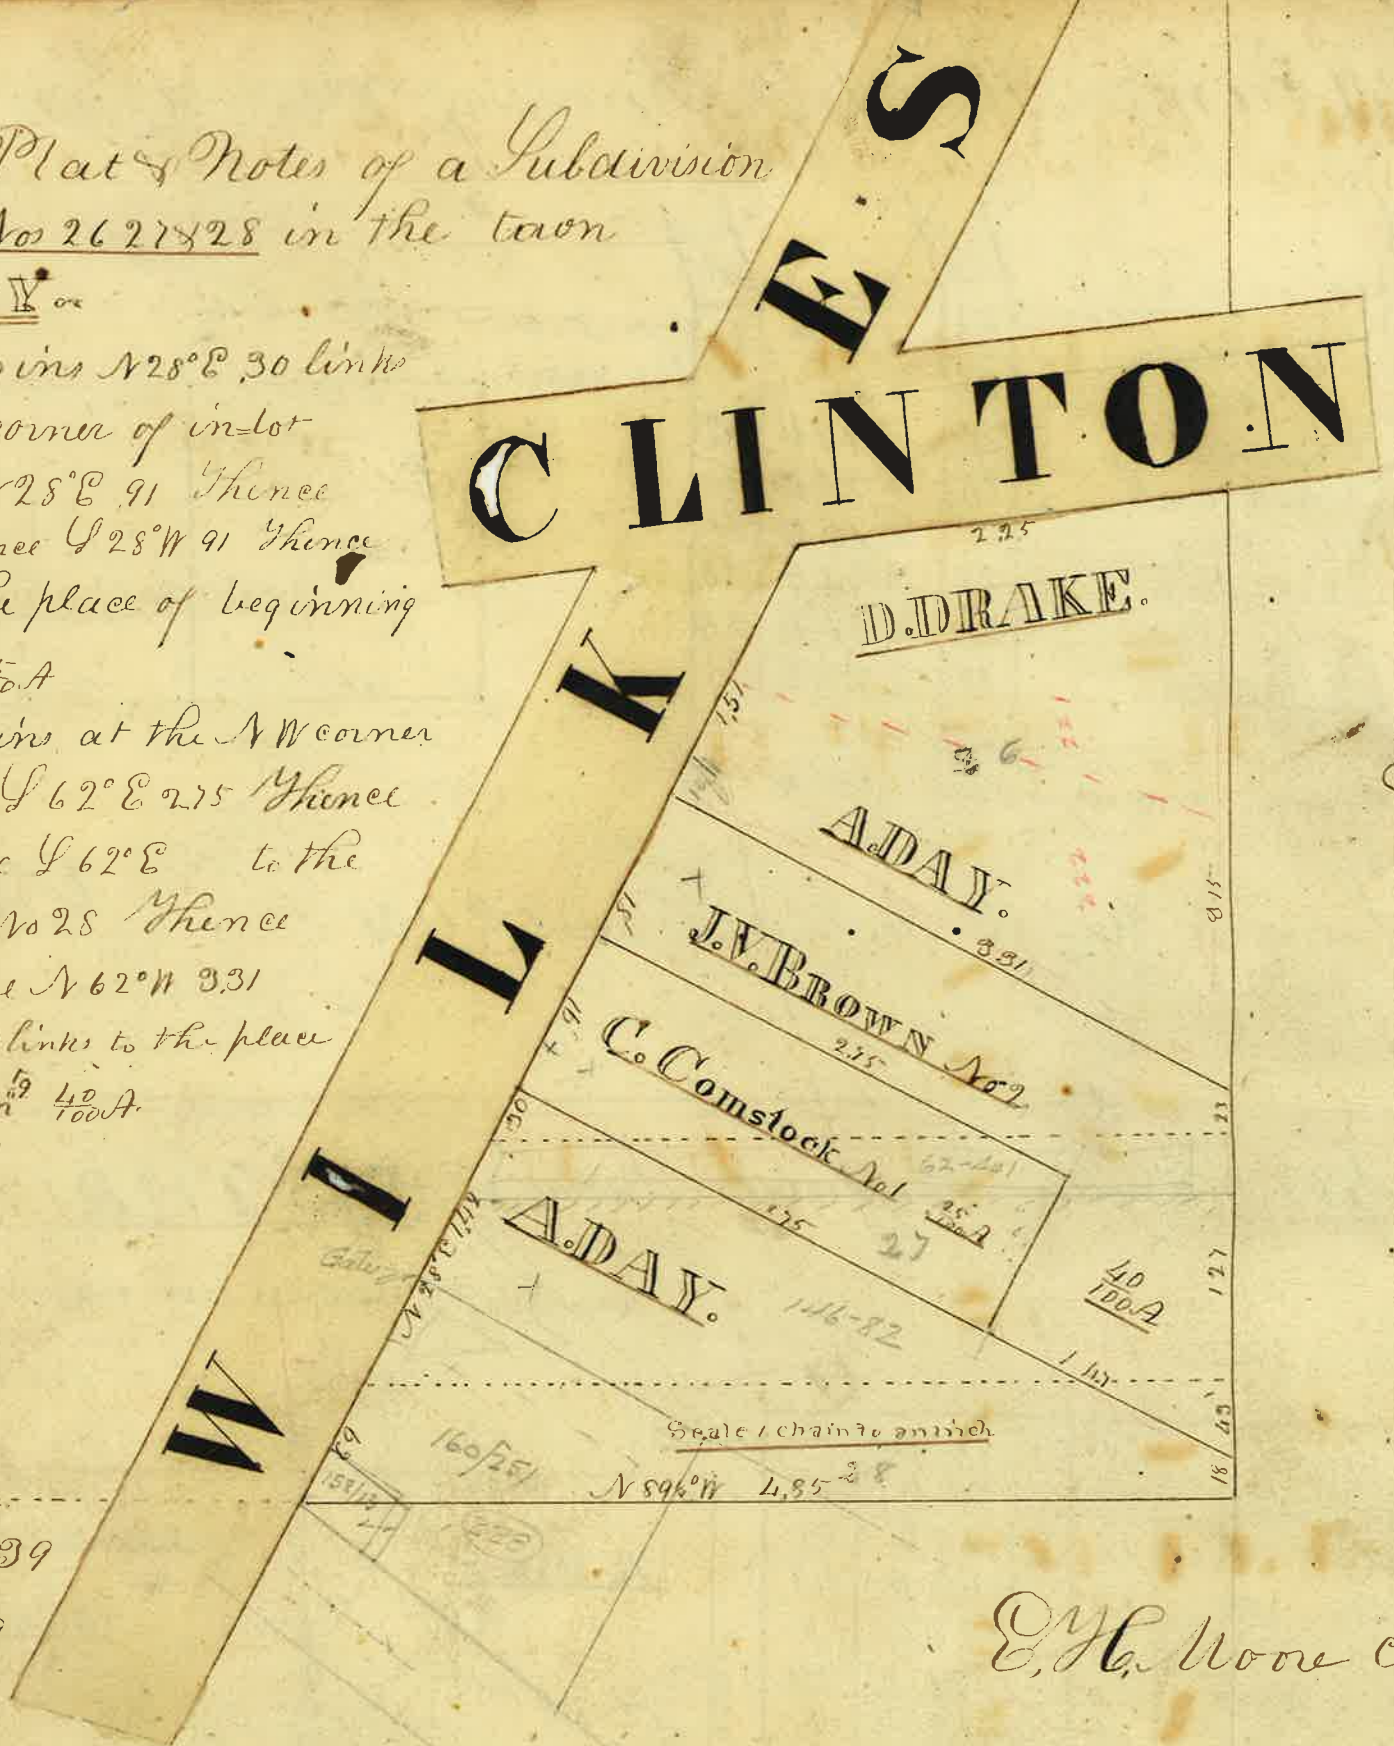 Plat & Notes of a Subdivision
Nos 26 27 & 28 in the town
Y
ins N28°E .30 links
corner of in=lot
28°E .91 Thence
S28°W 91 Thence
place of beginning
A
ins at the NW corner
S62°E 275 Thence
S62°E to the
No 28 Thence
N62°W 3.31
links to the place
40/100 A.
39
WILKES
CLINTON
2.25
D.DRAKE.
1,51
6
A.DAY.
3.31
915
,51
J.V.BROWN No 2
2.75
,91
C. Comstock No 1
25/100 A
62-441
23
,30
275
27
A.DAY.
146-82
N 28°E 1,42
40/100 A
127
1.47
43
18
63
Scale 1 chain to an inch
160/251
N 89½°W 4.85
28
228
E.H. Moore